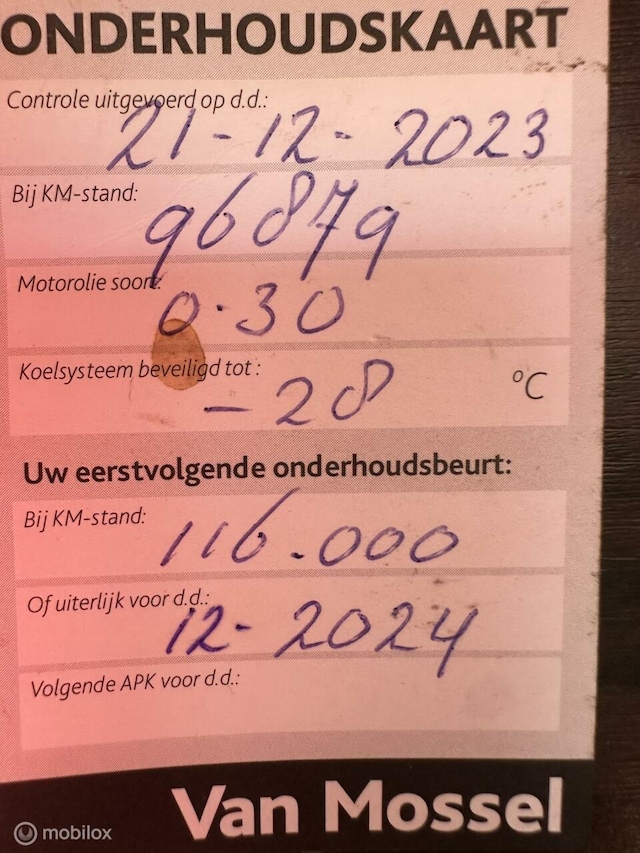 ONDERHOUDSKAART
Controle uitgevoerd op d.d.:
21-12-2023
Bij KM-stand:
96879
Motorolie soort:
0-30
Koelsysteem beveiligd tot :
-28 °C
Uw eerstvolgende onderhoudsbeurt:
Bij KM-stand:
116.000
Of uiterlijk voor d.d.:
12-2024
Volgende APK voor d.d.:
Van Mossel
mobilox